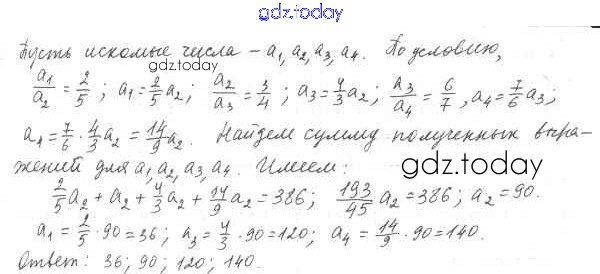 gdz.today
Пусть искомые числа – a₁, a₂, a₃, a₄. По условию,
gdz.today
a₁/a₂ = 2/5 ; a₁ = 2/5 a₂ ; a₂/a₃ = 3/4 ; a₃ = 4/3 a₂ ; a₃/a₄ = 6/7 , a₄ = 7/6 a₃ ;
a₄ = 7/6 · 4/3 a₂ = 14/9 a₂ . Найдем сумму полученных выра-
жений для a₁, a₂, a₃, a₄ . Имеем:
gdz.today
2/5 a₂ + a₂ + 4/3 a₂ + 14/9 a₂ = 386 ; 193/45 a₂ = 386 ; a₂ = 90.
a₁ = 2/5 · 90 = 36 ; a₃ = 4/3 · 90 = 120 ; a₄ = 14/9 · 90 = 140.
Ответ: 36; 90; 120; 140.